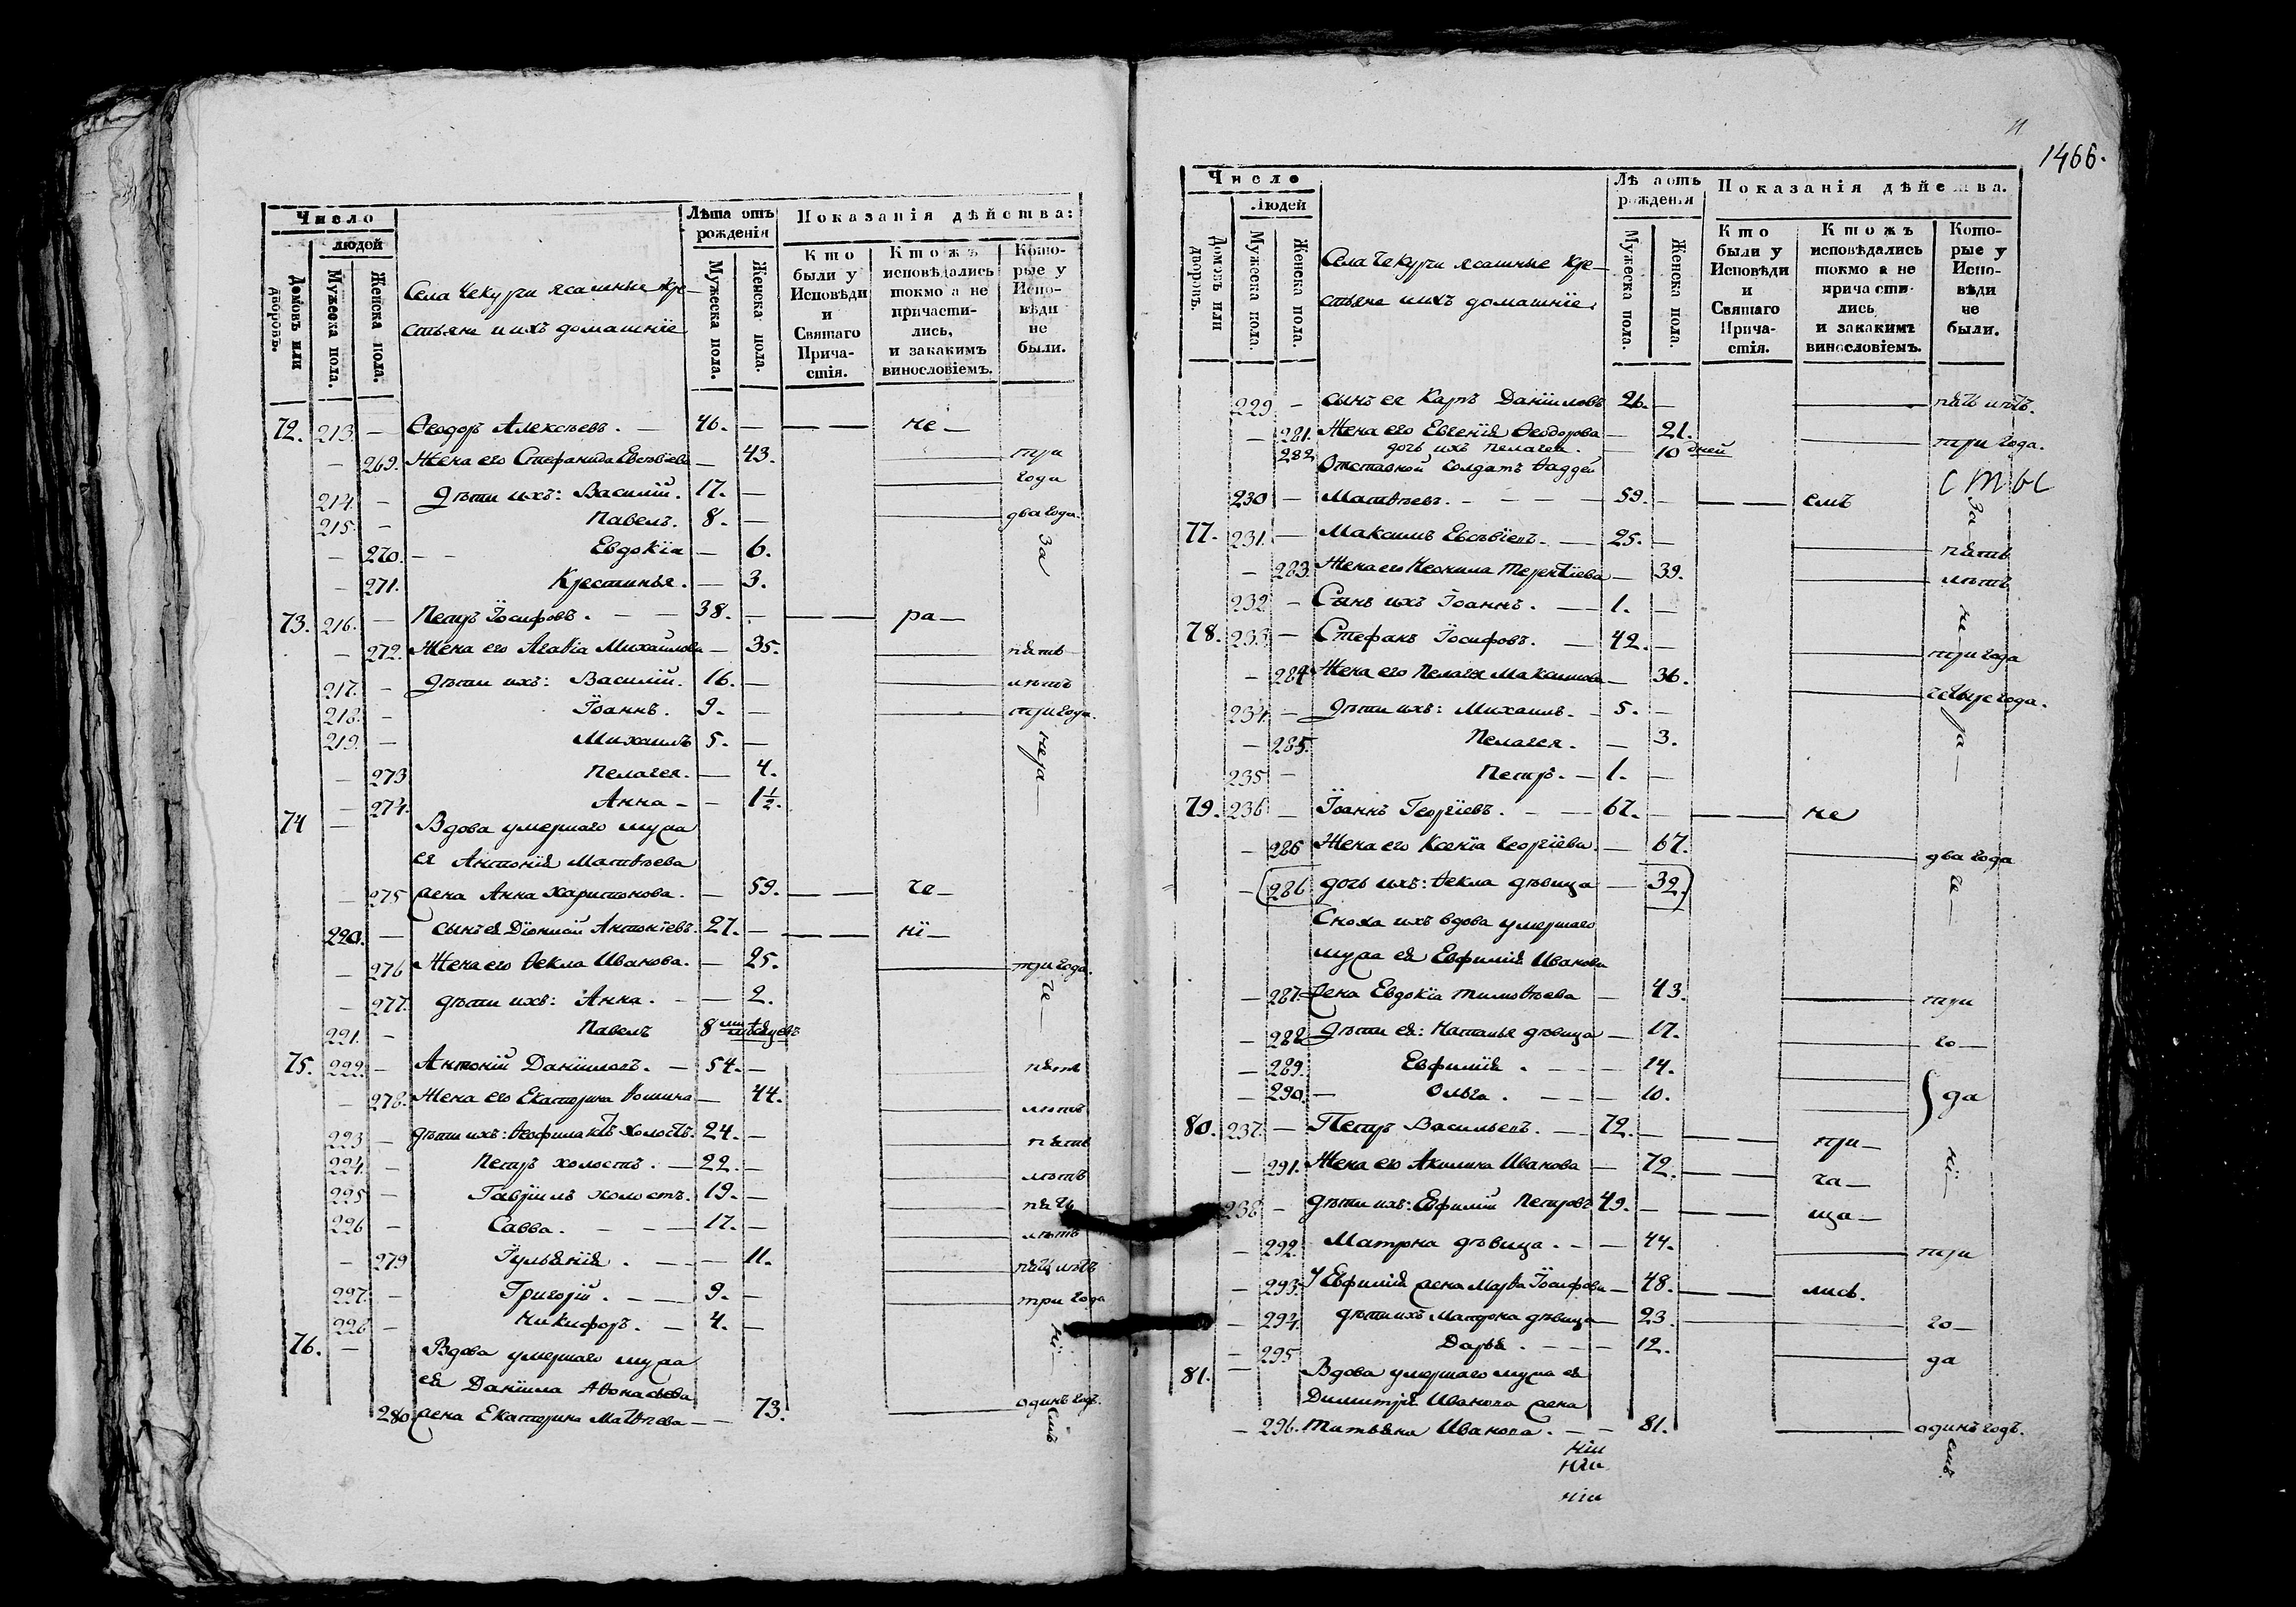 Число
людей
Домовъ или дворовъ.
Мужеска пола.
Женска пола.
Села Чекурчи ясашные кре-
стьяне и ихъ домашніе
Лѣта отъ рожденія
Мужеска пола.
Женска пола.
Показанія дѣйства:
Кто были у Исповѣди и Святаго Причастія.
Ктожъ исповѣдались токмо а не причастились, и закакимъ винословіемъ.
Которые у Исповѣди не были.
72. 213. — Ѳеодоръ Алексѣевъ. — 46. — — — не —
— 269. Жена его Стефанида Евсѣвіева — 43. — три
214. — Дѣти ихъ: Василій. 17. — — года
215. — Павелъ. 8. — — два года.
— 270. — — Евдокіа — 6. За
— 271. Крестинья. — 3.
73. 216. — Петръ Іосифовъ. — — 38. — — — ра —
— 272. Жена его Агаѳіа Михаилова — 35. — пять
217. — Дѣти ихъ: Василій. 16. — — лѣтъ
218. — Іоаннъ. 9. — — три года.
219. — Михаилъ 5. — нера
— 273 Пелагея. — 4.
— 274. Анна — — 1½.
74 — Вдова умершаго мужа
ея Антонія Матвѣева
— 275 жена Анна Харитонова. — 59. — — че —
220. — сынъ ея Діонисій Антоніевъ. 27. — — — ні —
— 276 Жена его Ѳекла Иванова. — 25. — три года.
— 277. дѣти ихъ: Анна. — — 2. че —
221. — Павелъ 8 мѣсяцевъ
75. 222. — Антоній Даніиловъ. — 54. — — пять
— 278. Жена его Екатерина Ѳомина — 44. — лѣтъ
223 — дѣти ихъ: Ѳеофилактъ холостъ. 24. — — пять
224. — Петръ холостъ. — 22. — — лѣтъ
225 — Гавріилъ холостъ. 19. — — пять
226 — Савва. — — — 17. — — лѣтъ
— 279 Іульянія. — — — 11. — пять лѣтъ
227. — Григорій. — — 9. — — три года
228 — Никифоръ. — 4. — ні —
76. — Вдова умершаго мужа
ея Даніила Аѳонасьева
280 жена Екатерина Матвѣева — — 73. — одинъ годъ.
емъ
1466.
Число
людей
Домовъ или дворовъ.
Мужеска пола.
Женска пола.
Села Чекурчи ясашные кре-
стьяне и ихъ домашніе.
Лѣта отъ рожденія
Мужеска пола.
Женска пола.
Показанія дѣйства.
Кто были у Исповѣди и Святаго Причастія.
Ктожъ исповѣдались токмо а не причастились и закакимъ винословіемъ.
Которые у Исповѣди не были.
229 — сынъ ея Карпъ Даніиловъ 26. — — пять лѣтъ.
— 281. Жена его Евгенія Ѳеодорова — 21. — три года.
282. дочь ихъ Пелагея. — 10 дней
Отставной солдатъ Ѳаддей
230 — Матвѣевъ. — — — — 59. — — — емъ
За
77. 231. — Максимъ Евсѣвіевъ. — 25. — — пять
— 283. Жена его Неонила Терентіева — 39. — лѣтъ
232 — Сынъ ихъ Іоаннъ. — — 1. — не —
78. 233 — Стефанъ Іосифовъ. — 42. — — три года
— 284 Жена его Пелагея Максимова — 36. — четыре года.
234. — Дѣти ихъ: Михаилъ. — 5. — ра —
— 285. Пелагея. — 3.
235 — Петръ. — 1. —
79. 236 — Іоаннъ Георгіевъ. — — 67. — — — не
— 286 Жена его Ксенія Георгіева. — 67. — два года
— 286 дочь ихъ: Ѳекла дѣвица — 32. че —
Сноха ихъ вдова умершаго
мужа ея Евфимія Иванова
— 287. жена Евдокіа Тимоѳеева — 43. — три
— 288 дѣти ея: Наталья дѣвица — 17. — го —
— 289. Евфимія. — — — 14. —
— 290. — Ольга. — — — 10. — да
80. 237. — Петръ Васильевъ. — — 72. — — — при —
— 291. Жена его Акилина Иванова — 72. — — ча — ні —
238 — дѣти ихъ: Евфимій Петровъ 49. — — — ща —
— 292. Матрна дѣвица. — — 44. — три
— 293. У Евфимія жена Марѳа Іосифова — 48. — — лись.
— 294. дѣти ихъ: Матрона дѣвица — 23. — го —
— 295 Дарья. — — — 12. — да
81. — Вдова умершаго мужа ея
Димитрія Иванова жена
— 296. Татьяна Иванова. — — 81. — одинъ годъ.
ніи
ніи
ніи
емъ.